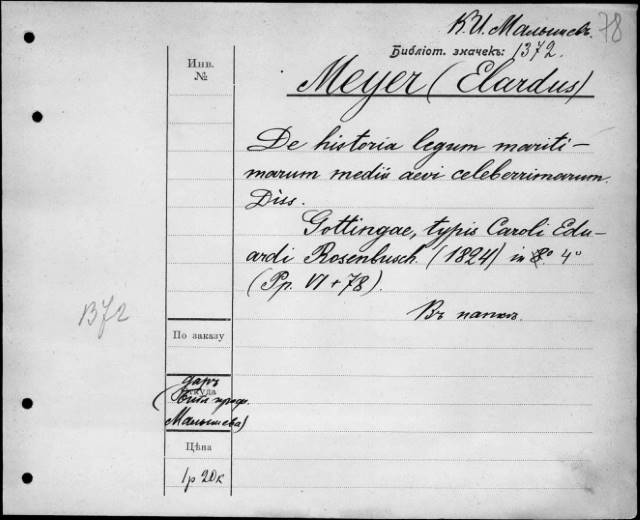 К.И. Малышев. 78
Библіот. значекъ: 1372.
Инв.
№
Meyer (Elardus)
De historia legum mariti-
marum medii aevi celeberrimarum.
Diss.
Gottingae, typis Caroli Edu-
ardi Rosenbusch. (1824) in 8º 4º
(Pp. VI + 78).
Въ папкѣ.
1372
По заказу
даръ
(библ. проф.
Малышева)
Цѣна
1 р 20 к